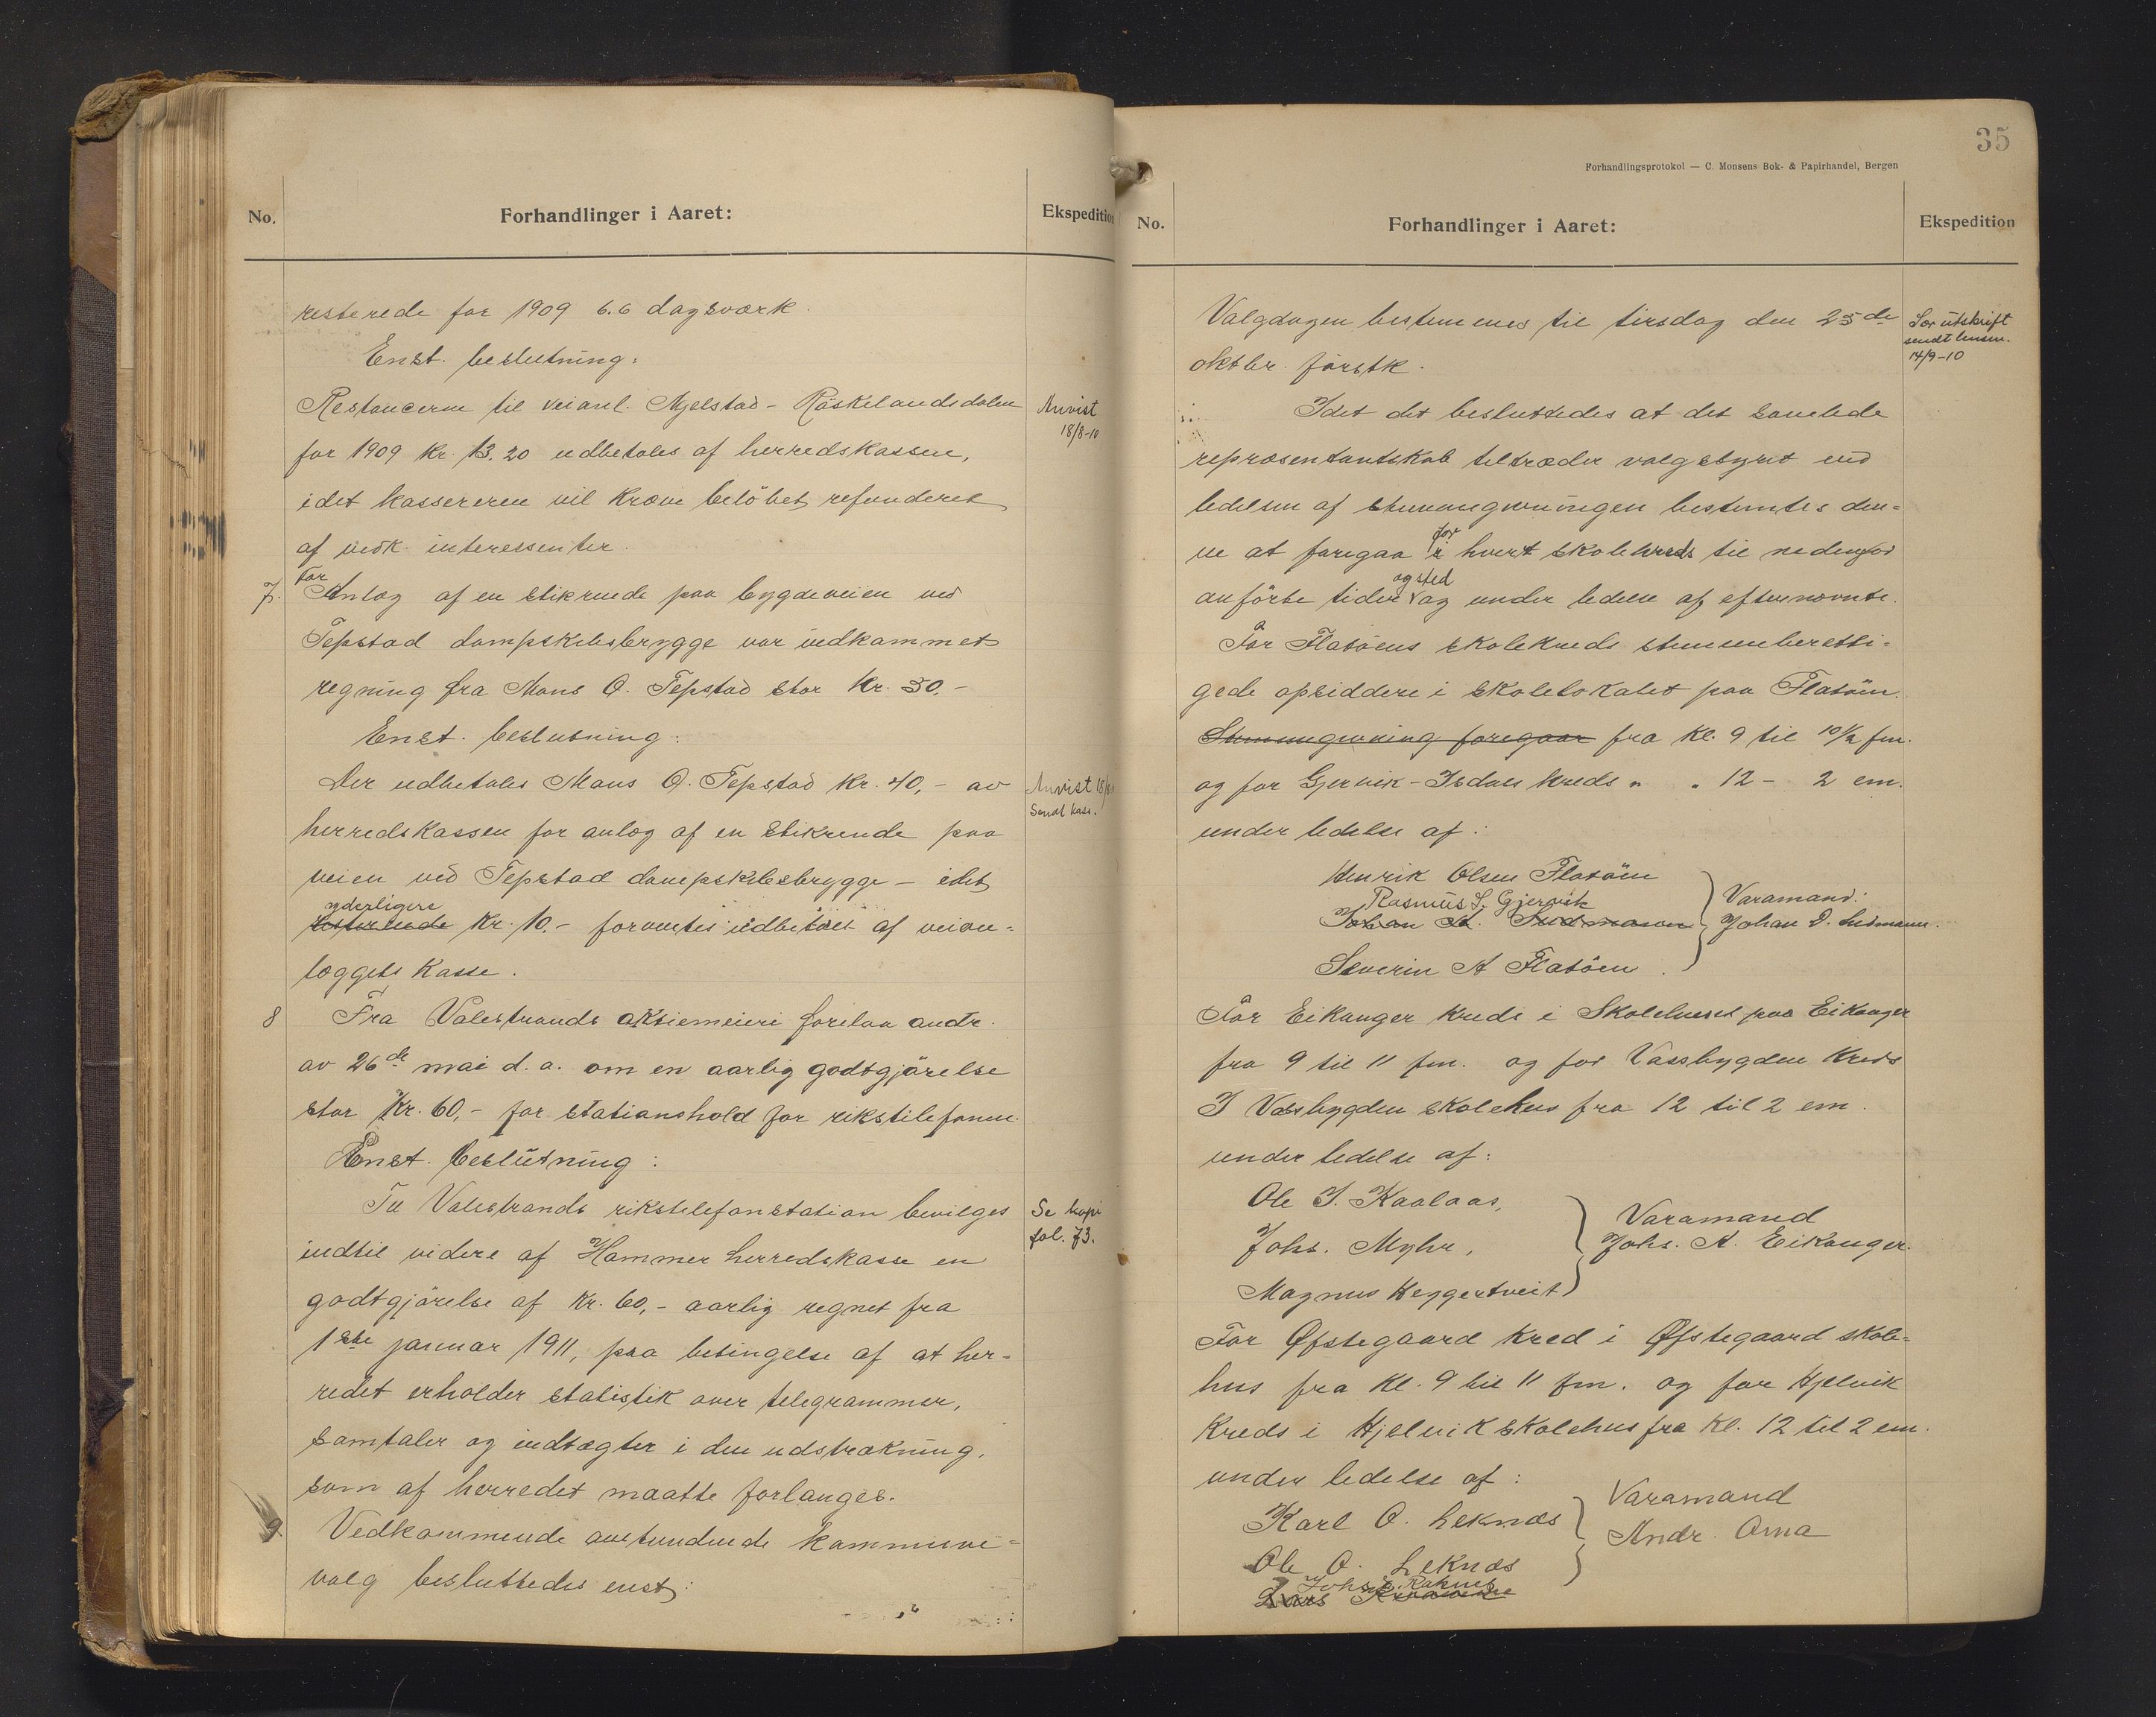 No.
Forhandlinger i Aaret:
Ekspedition
resterede for 1909 6.6 dagsværk.
Enst. beslutning:
Restancerne til veianl. Mjelstad - Röskelandsdalen
for 1909 kr. 13.20 udbetales af herredskassen,
idet kassereren vil kræve belöbet refunderet
af vedk. interessenter.
Anvist
18/8-10
7. For Anlæg af en stikrende paa bygdeveien ved
Tepstad dampskibsbrygge var indkommet
regning fra Mons O. Tepstad stor kr. 50.-
Enst. beslutning:
Der udbetales Mons O. Tepstad kr. 40,- av
herredskassen for anlæg af en stikrende paa
veien ved Tepstad dampskibsbrygge - idet
yderligere
resterende kr. 10.- forventes udbetalt af veian-
læggets kasse.
Anvist 18/8
Sendt kass.
8 Fra Valestrands aktiemeieri forelaa andr.
av 26de mai d.a. om en aarlig godtgjörelse
stor kr. 60,- for stationshold for rikstelefonen.
Enst. beslutning:
Til Valestrands rikstelefonstation bevilges
indtil videre af Hammer herredskasse en
godtgjörelse af kr. 60,- aarlig regnet fra
1ste januar 1911, paa betingelse af at her-
redet erholder statistik over telegrammer,
samtaler og indtægter i den udstrækning,
som af herredet maatte forlanges.
Se kopi
fol. 73.
9. Vedkommende anstundende kommune-
valg besluttedes enst:
35
Forhandlingsprotokol — C. Monsens Bok- & Papirhandel, Bergen
No.
Forhandlinger i Aaret:
Ekspedition
Valgdagen bestemmes til tirsdag den 25de
oktbr. förstk.
Sær utskrift
sendt lensm.
14/9-10
Idet det besluttedes at det samlede
repræsentantskab tiltræder valgstyret ved
ledelsen af stemmegivningen bestemtes den-
ne at foregaa i for hvert skolekreds til nedenfor
anförte tider og sted og under ledelse af efternævnte.
For Flatöens skolekreds stemmeberetti-
gede opsiddere i skolelokalet paa Flatöen.
Stemmegivning foregaar fra kl. 9 til 10 1/2 fm.
og for Gjervik - Isdals kreds " " 12 - 2 em.
under ledelse af:
Henrik Olsen Flatöen
Rasmus S. Gjervik
Johan D. Sudmann
Severin A Flatöen.
Varamand:
Johan D. Sudmann.
For Eikanger kreds i Skolehuset paa Eikanger
fra 9 til 11 fm. og for Vassbygden kreds
I Vassbygden skolehus fra 12 til 2 em.
under ledelse af:
Ole J. Kaalaas,
Johs. Myhr,
Magnus Heggertveit
Varamand
Johs. A. Eikanger.
For Øfstegaard kred i Øfstegaard skole-
hus fra kl. 9 til 11 fm. og for Hjelvik
kreds i Hjelvik skolehus fra kl. 12 til 2 em.
under ledelse af:
Karl O. Leknæs
Ole O. Leknæs
Johs. Raknes
Lars
Varamand
Andr. Arna